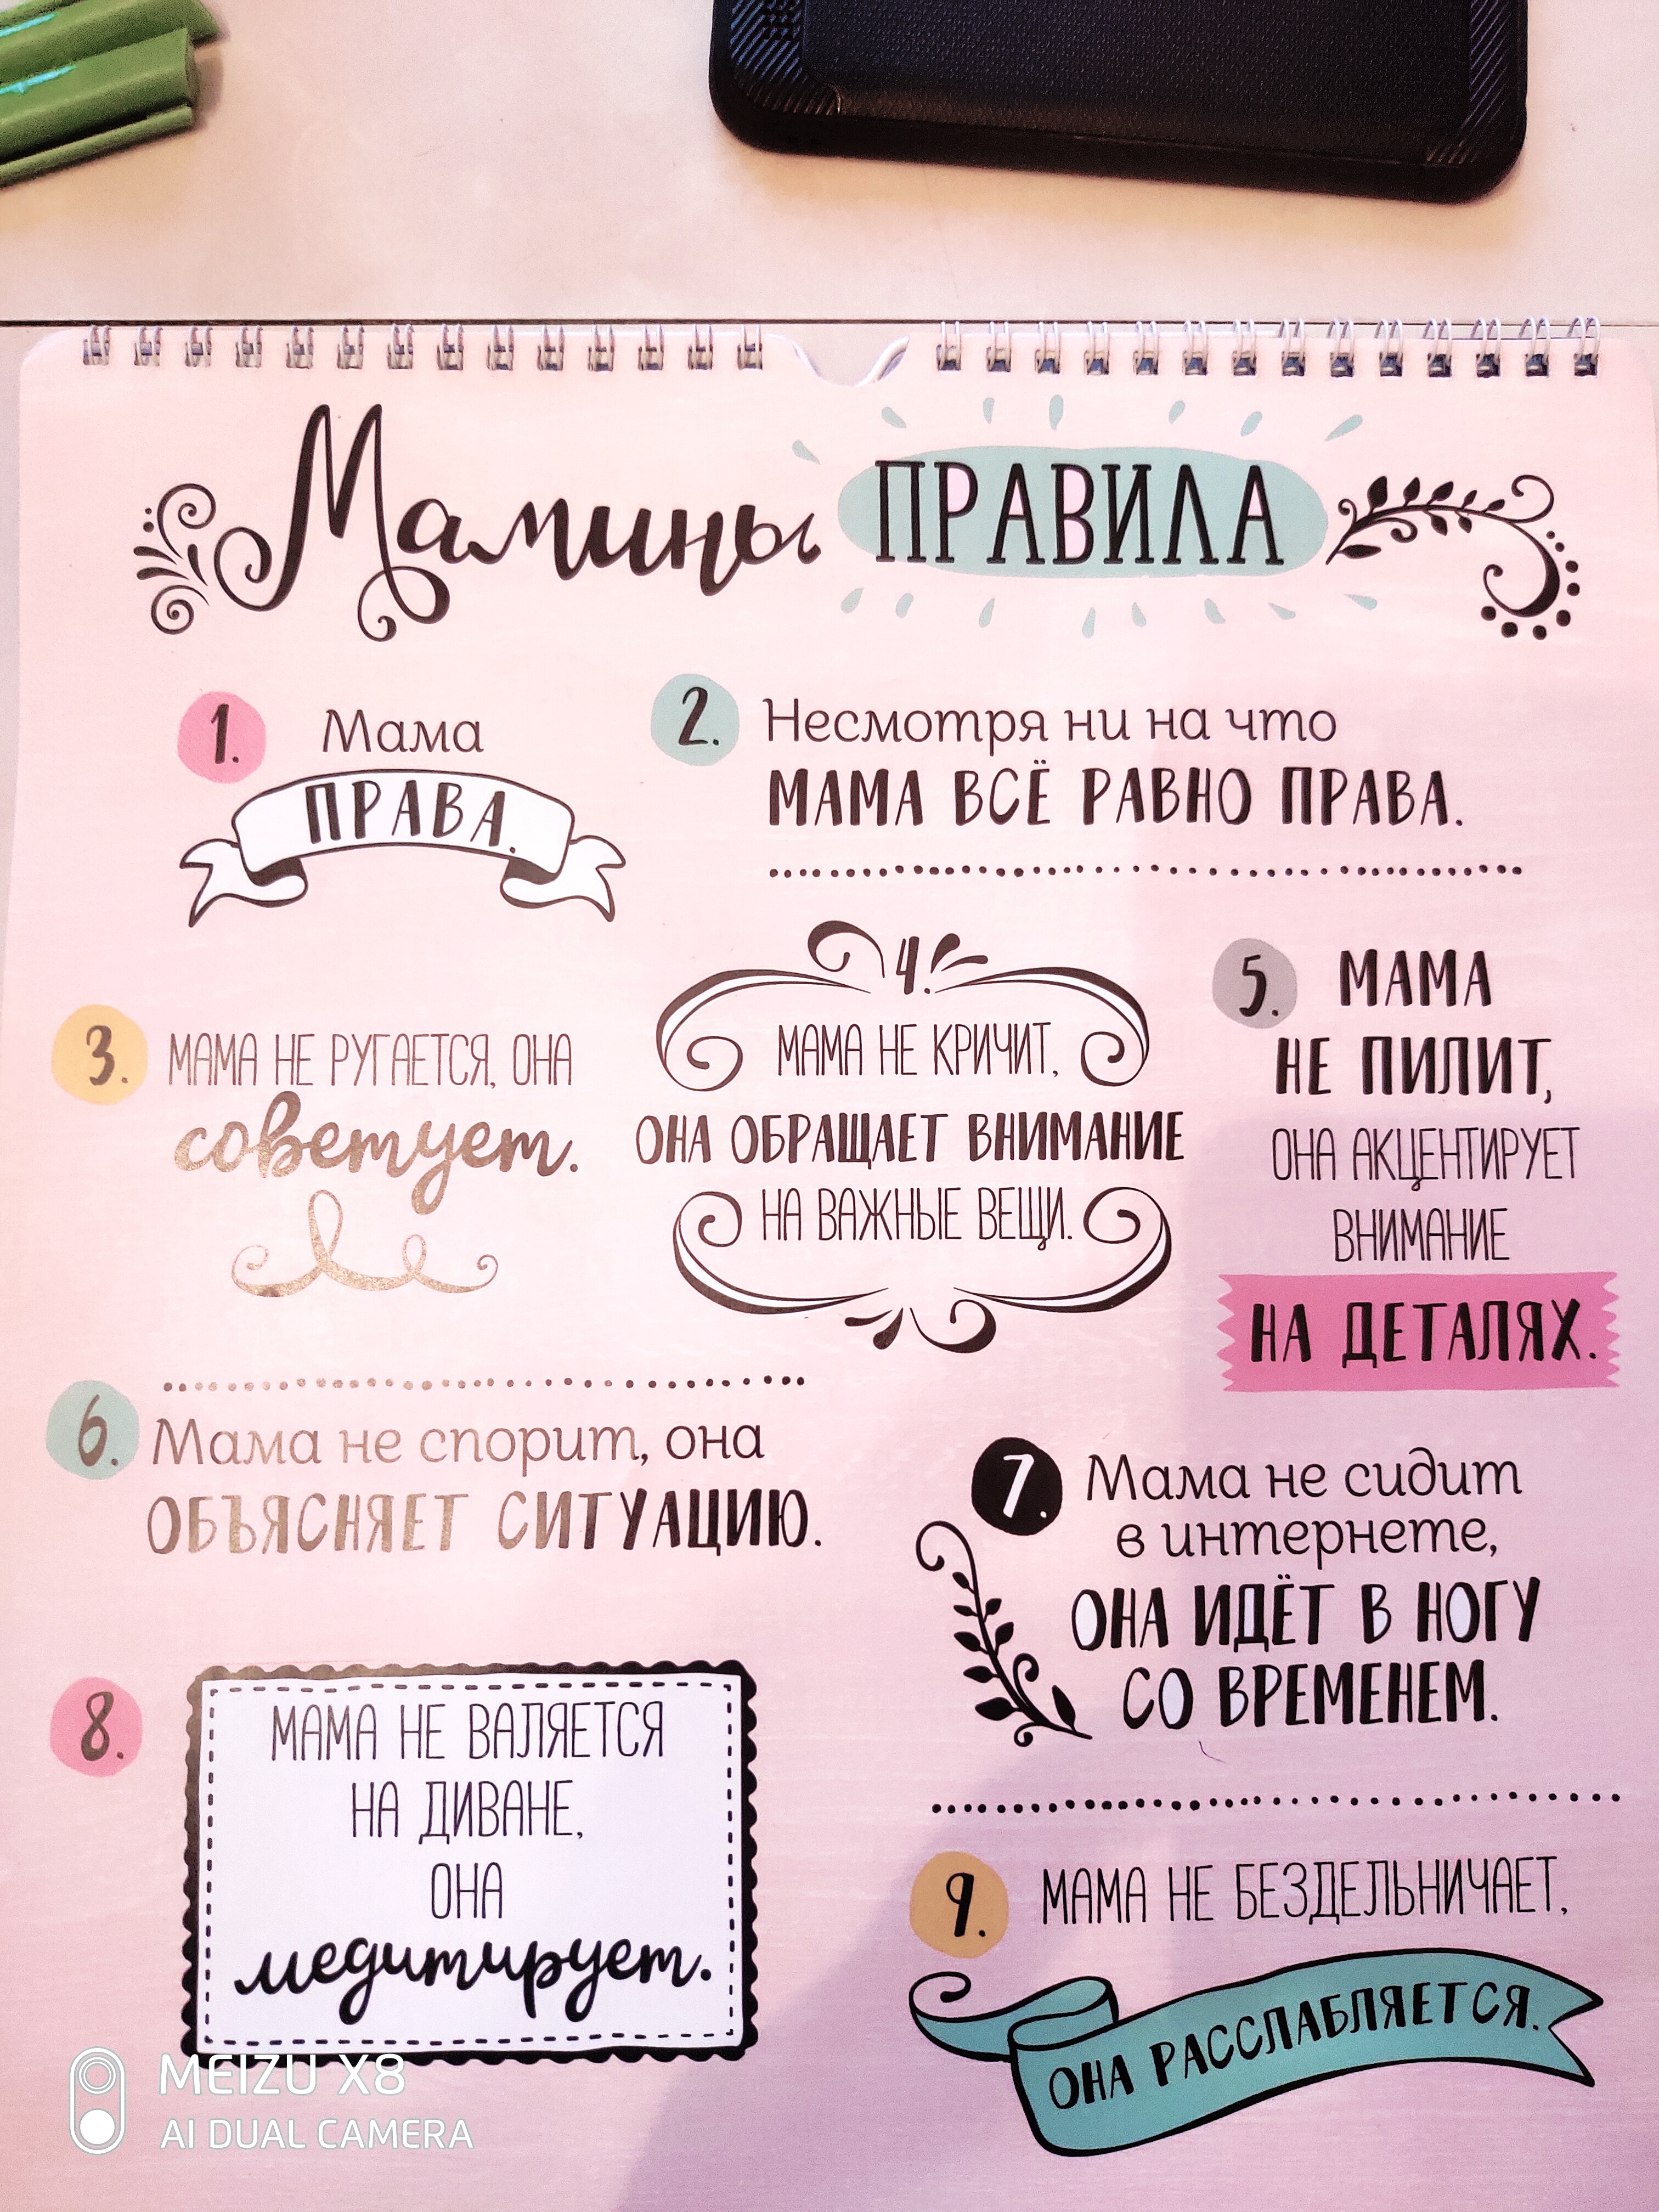 Мамины ПРАВИЛА
1. Мама
ПРАВА.
2. Несмотря ни на что
МАМА ВСЁ РАВНО ПРАВА.
3. МАМА НЕ РУГАЕТСЯ, ОНА
советует.
4.
МАМА НЕ КРИЧИТ,
ОНА ОБРАЩАЕТ ВНИМАНИЕ
НА ВАЖНЫЕ ВЕЩИ.
5. МАМА
НЕ ПИЛИТ,
ОНА АКЦЕНТИРУЕТ
ВНИМАНИЕ
НА ДЕТАЛЯХ.
6. Мама не спорит, она
ОБЪЯСНЯЕТ СИТУАЦИЮ.
7. Мама не сидит
в интернете,
ОНА ИДЁТ В НОГУ
СО ВРЕМЕНЕМ.
8. МАМА НЕ ВАЛЯЕТСЯ
НА ДИВАНЕ,
ОНА
медитирует.
9. МАМА НЕ БЕЗДЕЛЬНИЧАЕТ,
ОНА РАССЛАБЛЯЕТСЯ.
MEIZU X8
AI DUAL CAMERA